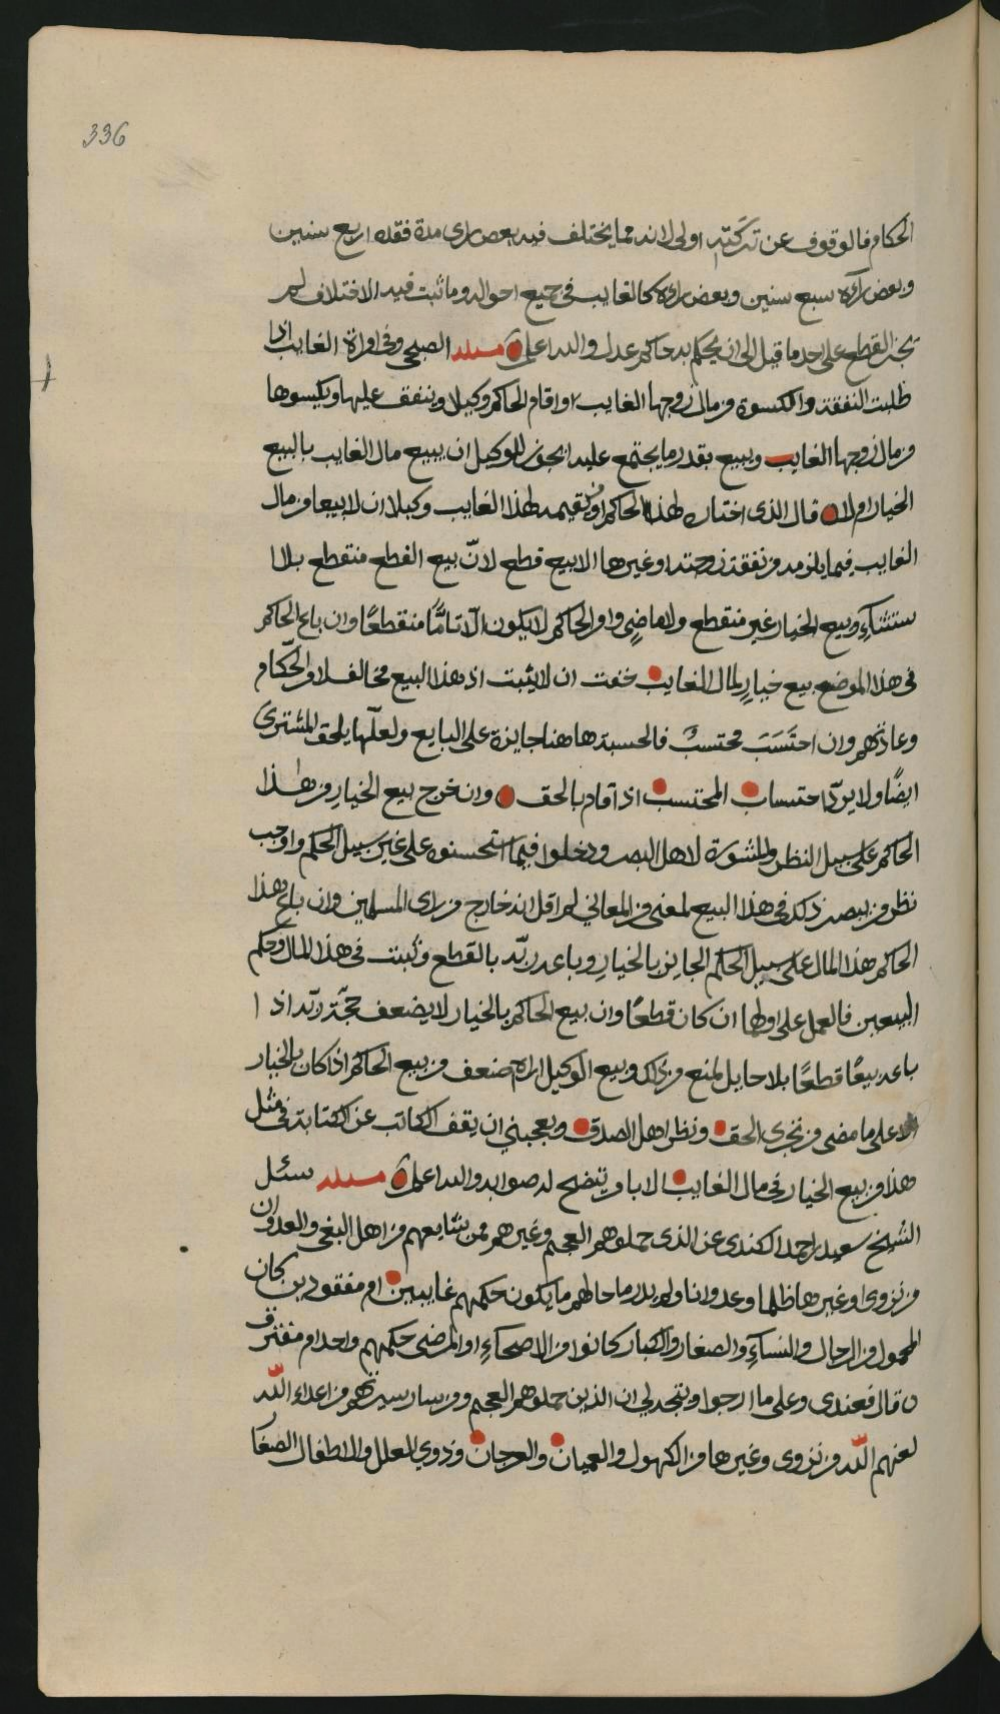 336
الحكام فالوقوف عن تركته اولى لانه مما يختلف فيه بعض راى مدة فقده اربع سنين
وبعض رآه سبع سنين وبعض رآه كالغايب في جميع احواله وما ثبت فيه الاختلاف لم
يجز القطع على احد ما قيل الى ان يحكم به حاكم عدل والله اعلم مسئله الصبحي وفي امراة الغايب اذا
طلبت النفقة والكسوة من مال زوجها الغايب واقام الحاكم وكيلا وينفق عليها ويكسوها
من مال زوجها الغايب ويبيع بقدر ما يجتمع عليه ايجوز للوكيل ان يبيع مال الغايب بالبيع
الخيار ام لا قال الذى اختاره لهذا الحاكم او من يقيمه لهذا الغايب وكيلا ان لا يبيعا من مال
الغايب فيما يلزمه من نفقة زوجته او غيرها الا بيع قطع لانّ بيع القطع منقطع بلا ا
ستثناءٍ وبيع الخيار غير منقطع ولا ماضٍ وامر الحاكم لا يكون الّا تامًّا منقطعًا وان باع الحاكم
في هذا الموضع بيع خيارٍ لمال الغايب خفت ان لا يثبت اذ هذا البيع مخالف لامر الحكّام
وعادتهم وان احتَسَبَ محتسبٌ فالحسبة هاهنا جايزة على البايع ولعلّها يلحق المشترى
ايضًا ولا يردّ احتساب المحتسب اذ اقام بالحق وان خرج بيع الخيار من هذا
الحاكم على سبيل النظر والمشورة لاهل البصر ودخلوا فيما استحسنوه على غير سبيل الحكم واوجب
نظر من يبصر ذلك في هذا البيع لمعنى من المعاني لم اقل انه خارج من راى المسلمين وان باع هذا
الحاكم هذا المال على سبيل الحكم الجايز بالخيارِ وباعه ربّه بالقطع وثبت في هذا المال حكم
البيعين فالعمل على اولهما ان كان قطعًا وان بيع الحاكم بالخيار لا يضعف حجّة ربّه اذ ا
باعه بيعًا قطعًا بلا حايل لمنع من ذلك وبيع الوكيل اراه اضعف من بيع الحاكم اذا كان بالخيار
الا على ما مضى من تحرى الحق ونظر اهل الصدق ويعجبني ان يقف الكاتب عن الكتابة في مثل
هذا من بيع الخيار في مال الغايب الا بامر يتضح له صوابه والله اعلم مسئله سئل
الشيخ سعيد بن احمد الكندى عن الذى حملوهم العجم وغيرهم ممن شايعهم من اهل البغي والعدوان
من نزوى او غيرها ظلما وعدوانا ولم يدر ما حالهم ما يكون حكمهم غايبين ام مفقودين كان
المحمول من الرجال والنساءِ والصغار والكبار كانوا من الاصحاءِ او المرضى حكمهم واحد ام مفترق
قال فعندى وعلى ما ارجوا ويتجه لي ان الذين حملوهم العجم ومن سار سيرتهم من اعداء اللّه
لعنهم اللّه من نزوى وغيرها من الكهول والعميان والعرجان وذوي العلل والاطفال الصغا